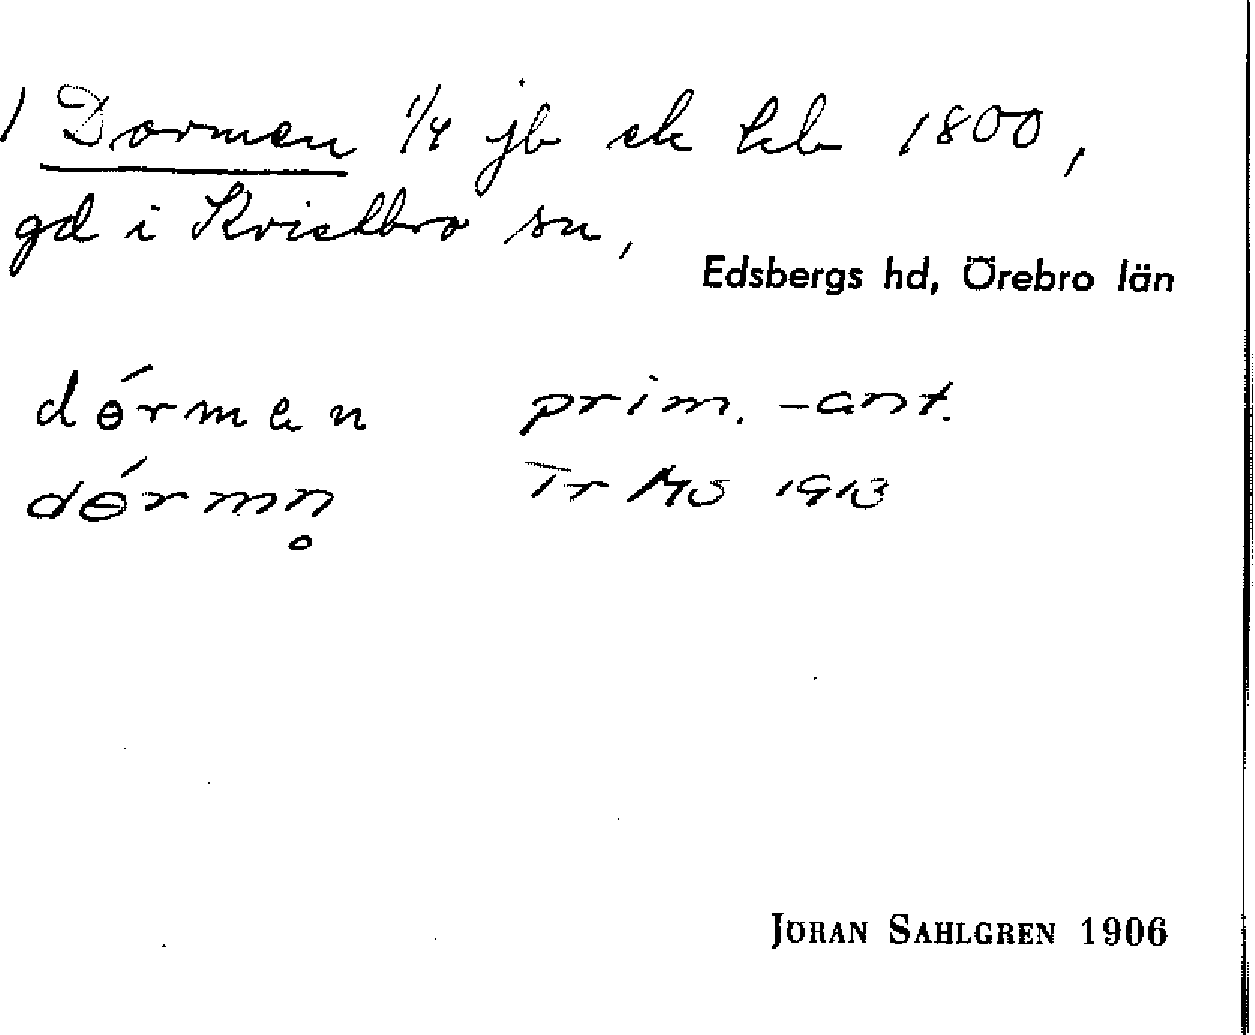 1 Dormen 1/4 jb sk hb 1800,
gd i Kvistbro sn,
Edsbergs hd, Örebro län
dɵ́rmen prim.-ant.
dɵ́rmn̥ Tr MS 1913
JÖRAN SAHLGREN 1906